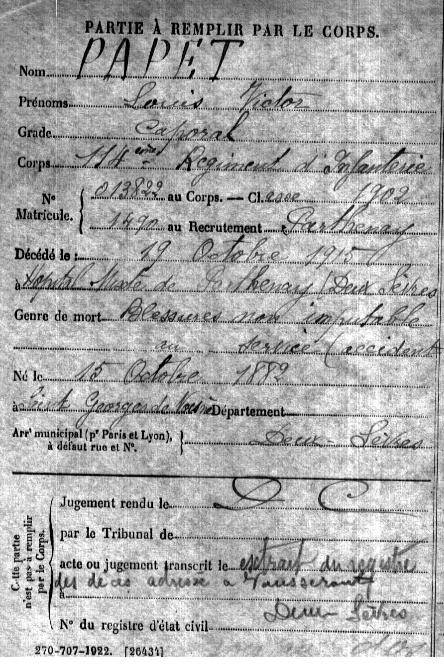 PARTIE À REMPLIR PAR LE CORPS.
Nom PAPET
Prénoms Louis Victor
Grade Caporal
Corps 114ème Régiment d'Infanterie
N° Matricule. 013822 au Corps. — Classe 1902
1490 au Recrutement Parthenay
Décédé le 19 Octobre 1915
à Hôpital Mixte de Parthenay (Deux Sèvres
Genre de mort Blessures non imputable
au service (accident
Né le 15 Octobre 1882
à Saint Georges de Département
Deux-Sèvres
Arr' municipal (p' Paris et Lyon), à défaut rue et N°.
Cette partie n'est pas à remplir par le Corps.
Jugement rendu le D C
par le Tribunal de
acte ou jugement transcrit le extrait du registre
des décès adressé à Vausseroux
Deux Sèvres
N° du registre d'état civil
270-707-1922. [26434]